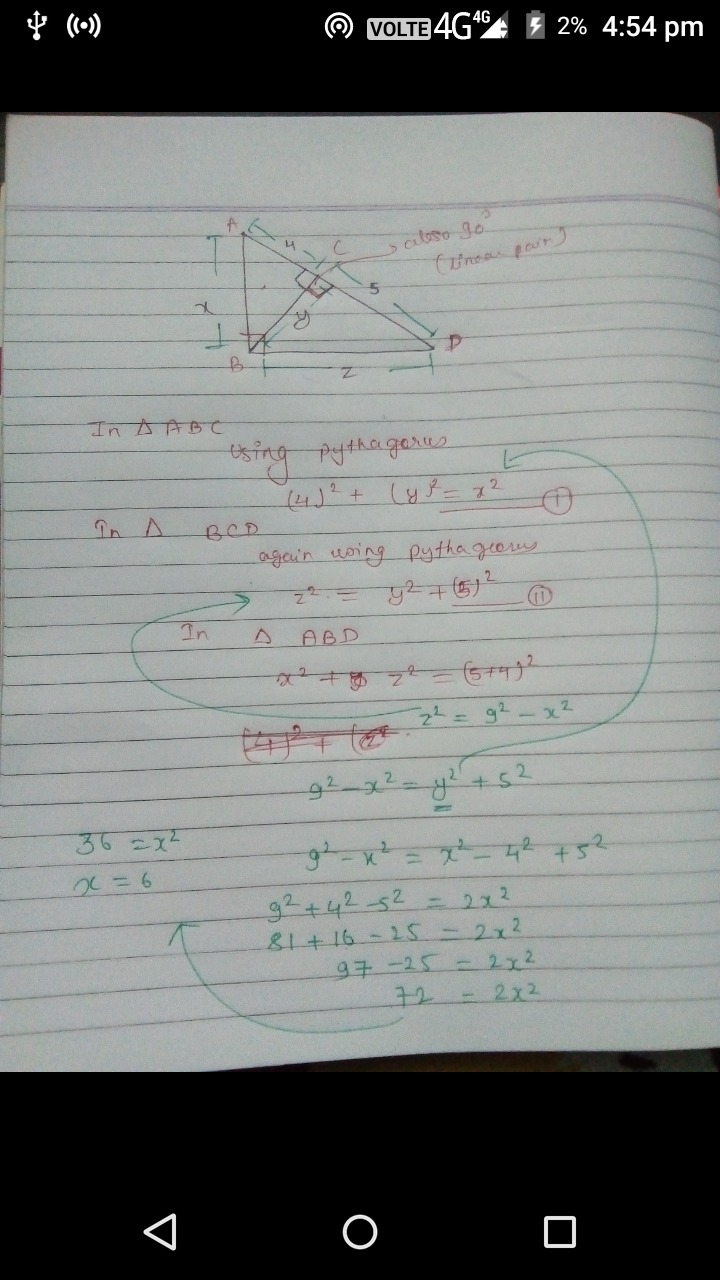 VOLTE 4G 4G 2% 4:54 pm
A
4
C
also 90°
(linear pair)
5
x
y
B
D
z
In Δ ABC
using pythagorus
(4)² + (y)² = x² (i)
In Δ BCD
again using pythageorus
z² = y² + (5)² (ii)
In Δ ABD
x² + z² = (5+4)²
z² = 9² - x²
(4)² + (z²
9² - x² = y² + 5²
9² - x² = x² - 4² + 5²
9² + 4² - 5² = 2x²
81 + 16 - 25 = 2x²
97 - 25 = 2x²
72 = 2x²
36 = x²
x = 6